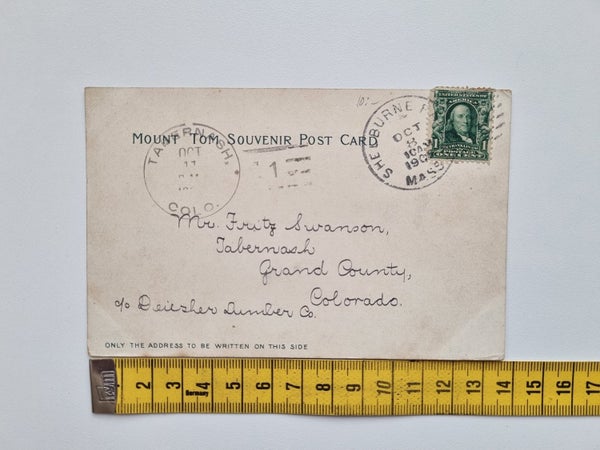 MOUNT TOM SOUVENIR POST CARD
TABERNASH,
OCT
11
COLO.
1
SHELBURNE
OCT
8
10AM
190
MASS
UNITED STATES OF AMERICA
1
1
ONE CENT
Mr. Fritz Swanson,
Tabernash
Grand County,
Colorado.
c/o Lumber Co.
ONLY THE ADDRESS TO BE WRITTEN ON THIS SIDE
2 3 4 5 6 7 8 9 10 11 12 13 14 15 16 17
Germany